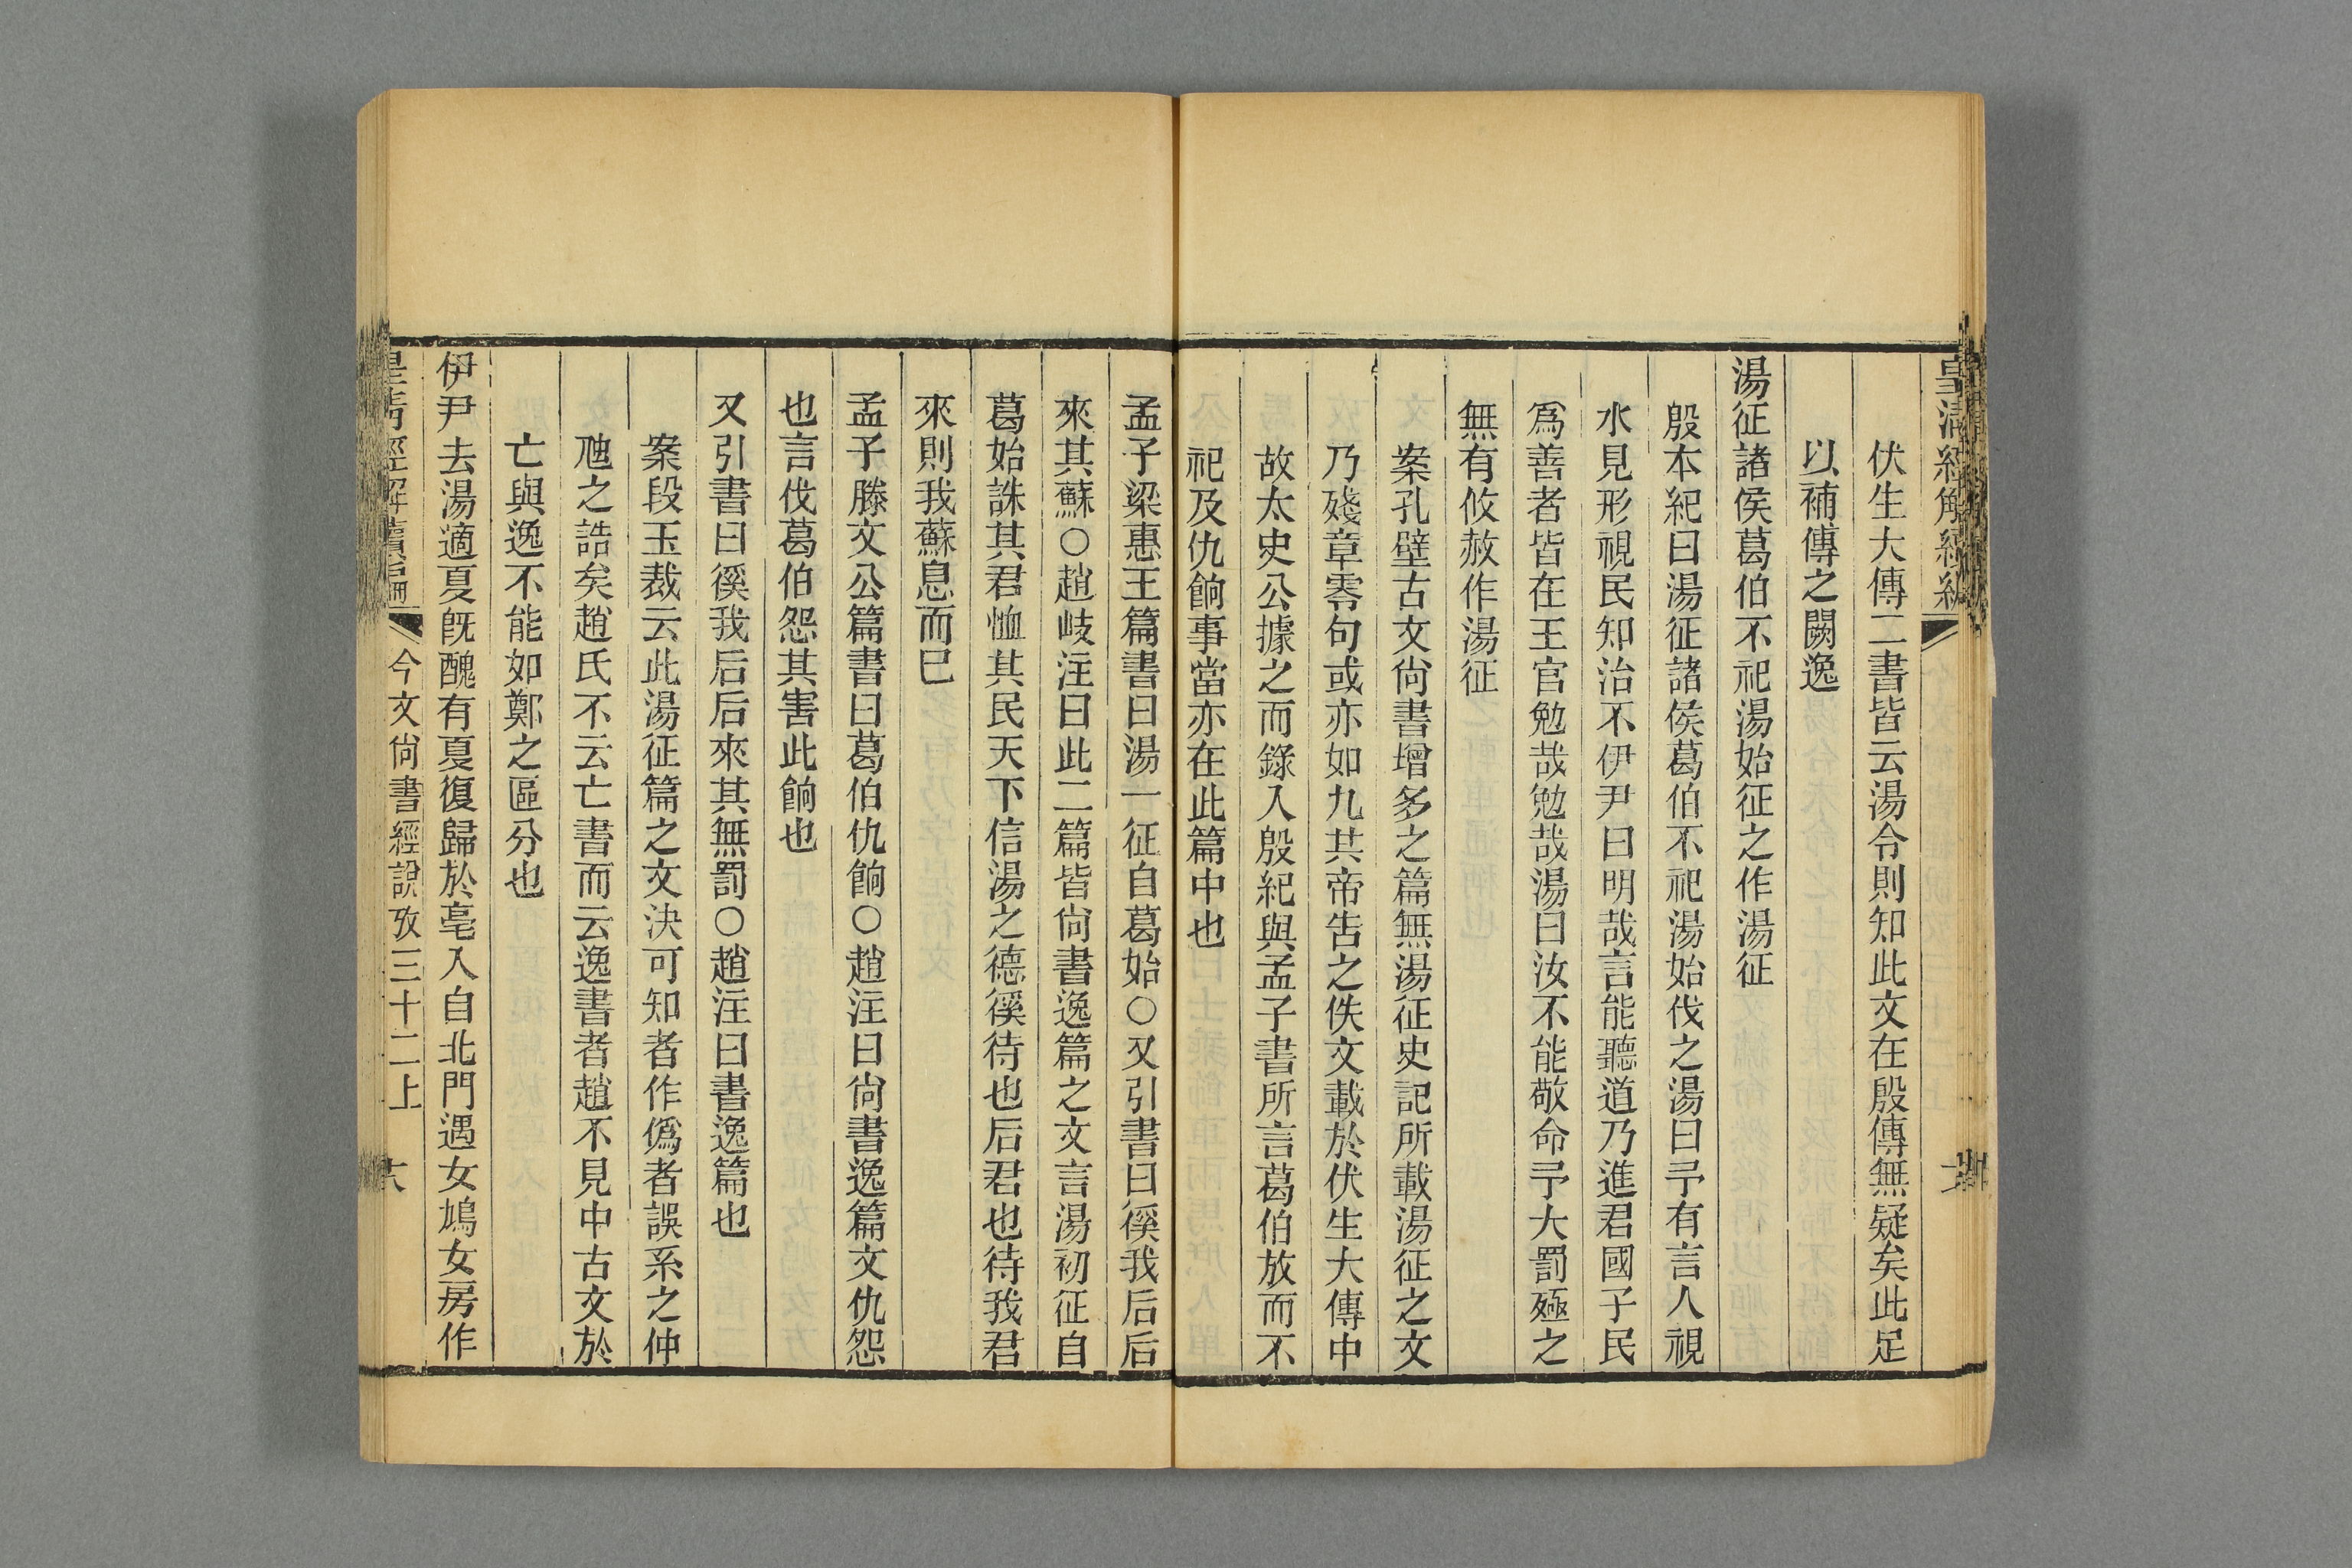 皇清經解續編
伏生大傳二書皆云湯令則知此文在殷傳無疑矣此足
以補傳之闕逸
湯征諸侯葛伯不祀湯始征之作湯征
殷本紀曰湯征諸侯葛伯不祀湯始伐之湯曰予有言人視
水見形視民知治不伊尹曰明哉言能聽道乃進君國子民
爲善者皆在王官勉哉勉哉湯曰汝不能敬命予大罰殛之
無有攸赦作湯征
案孔壁古文尙書增多之篇無湯征史記所載湯征之文
乃殘章零句或亦如九共帝告之佚文載於伏生大傳中
故太史公據之而錄入殷紀與孟子書所言葛伯放而不
祀及仇餉事當亦在此篇中也
孟子梁惠王篇書曰湯一征自葛始○又引書曰徯我后后
來其蘇○趙岐注曰此二篇皆尙書逸篇之文言湯初征自
葛始誅其君恤其民天下信湯之德徯待也后君也待我君
來則我蘇息而已
孟子滕文公篇書曰葛伯仇餉○趙注曰尙書逸篇文仇怨
也言伐葛伯怨其害此餉也
又引書曰徯我后后來其無罰○趙注曰書逸篇也
案段玉裁云此湯征篇之文決可知者作僞者誤系之仲
虺之誥矣趙氏不云亡書而云逸書者趙不見中古文於
亡與逸不能如鄭之區分也
伊尹去湯適夏旣醜有夏復歸於亳入自北門遇女鳩女房作
皇清經解續編 今文尙書經說攷三十二上